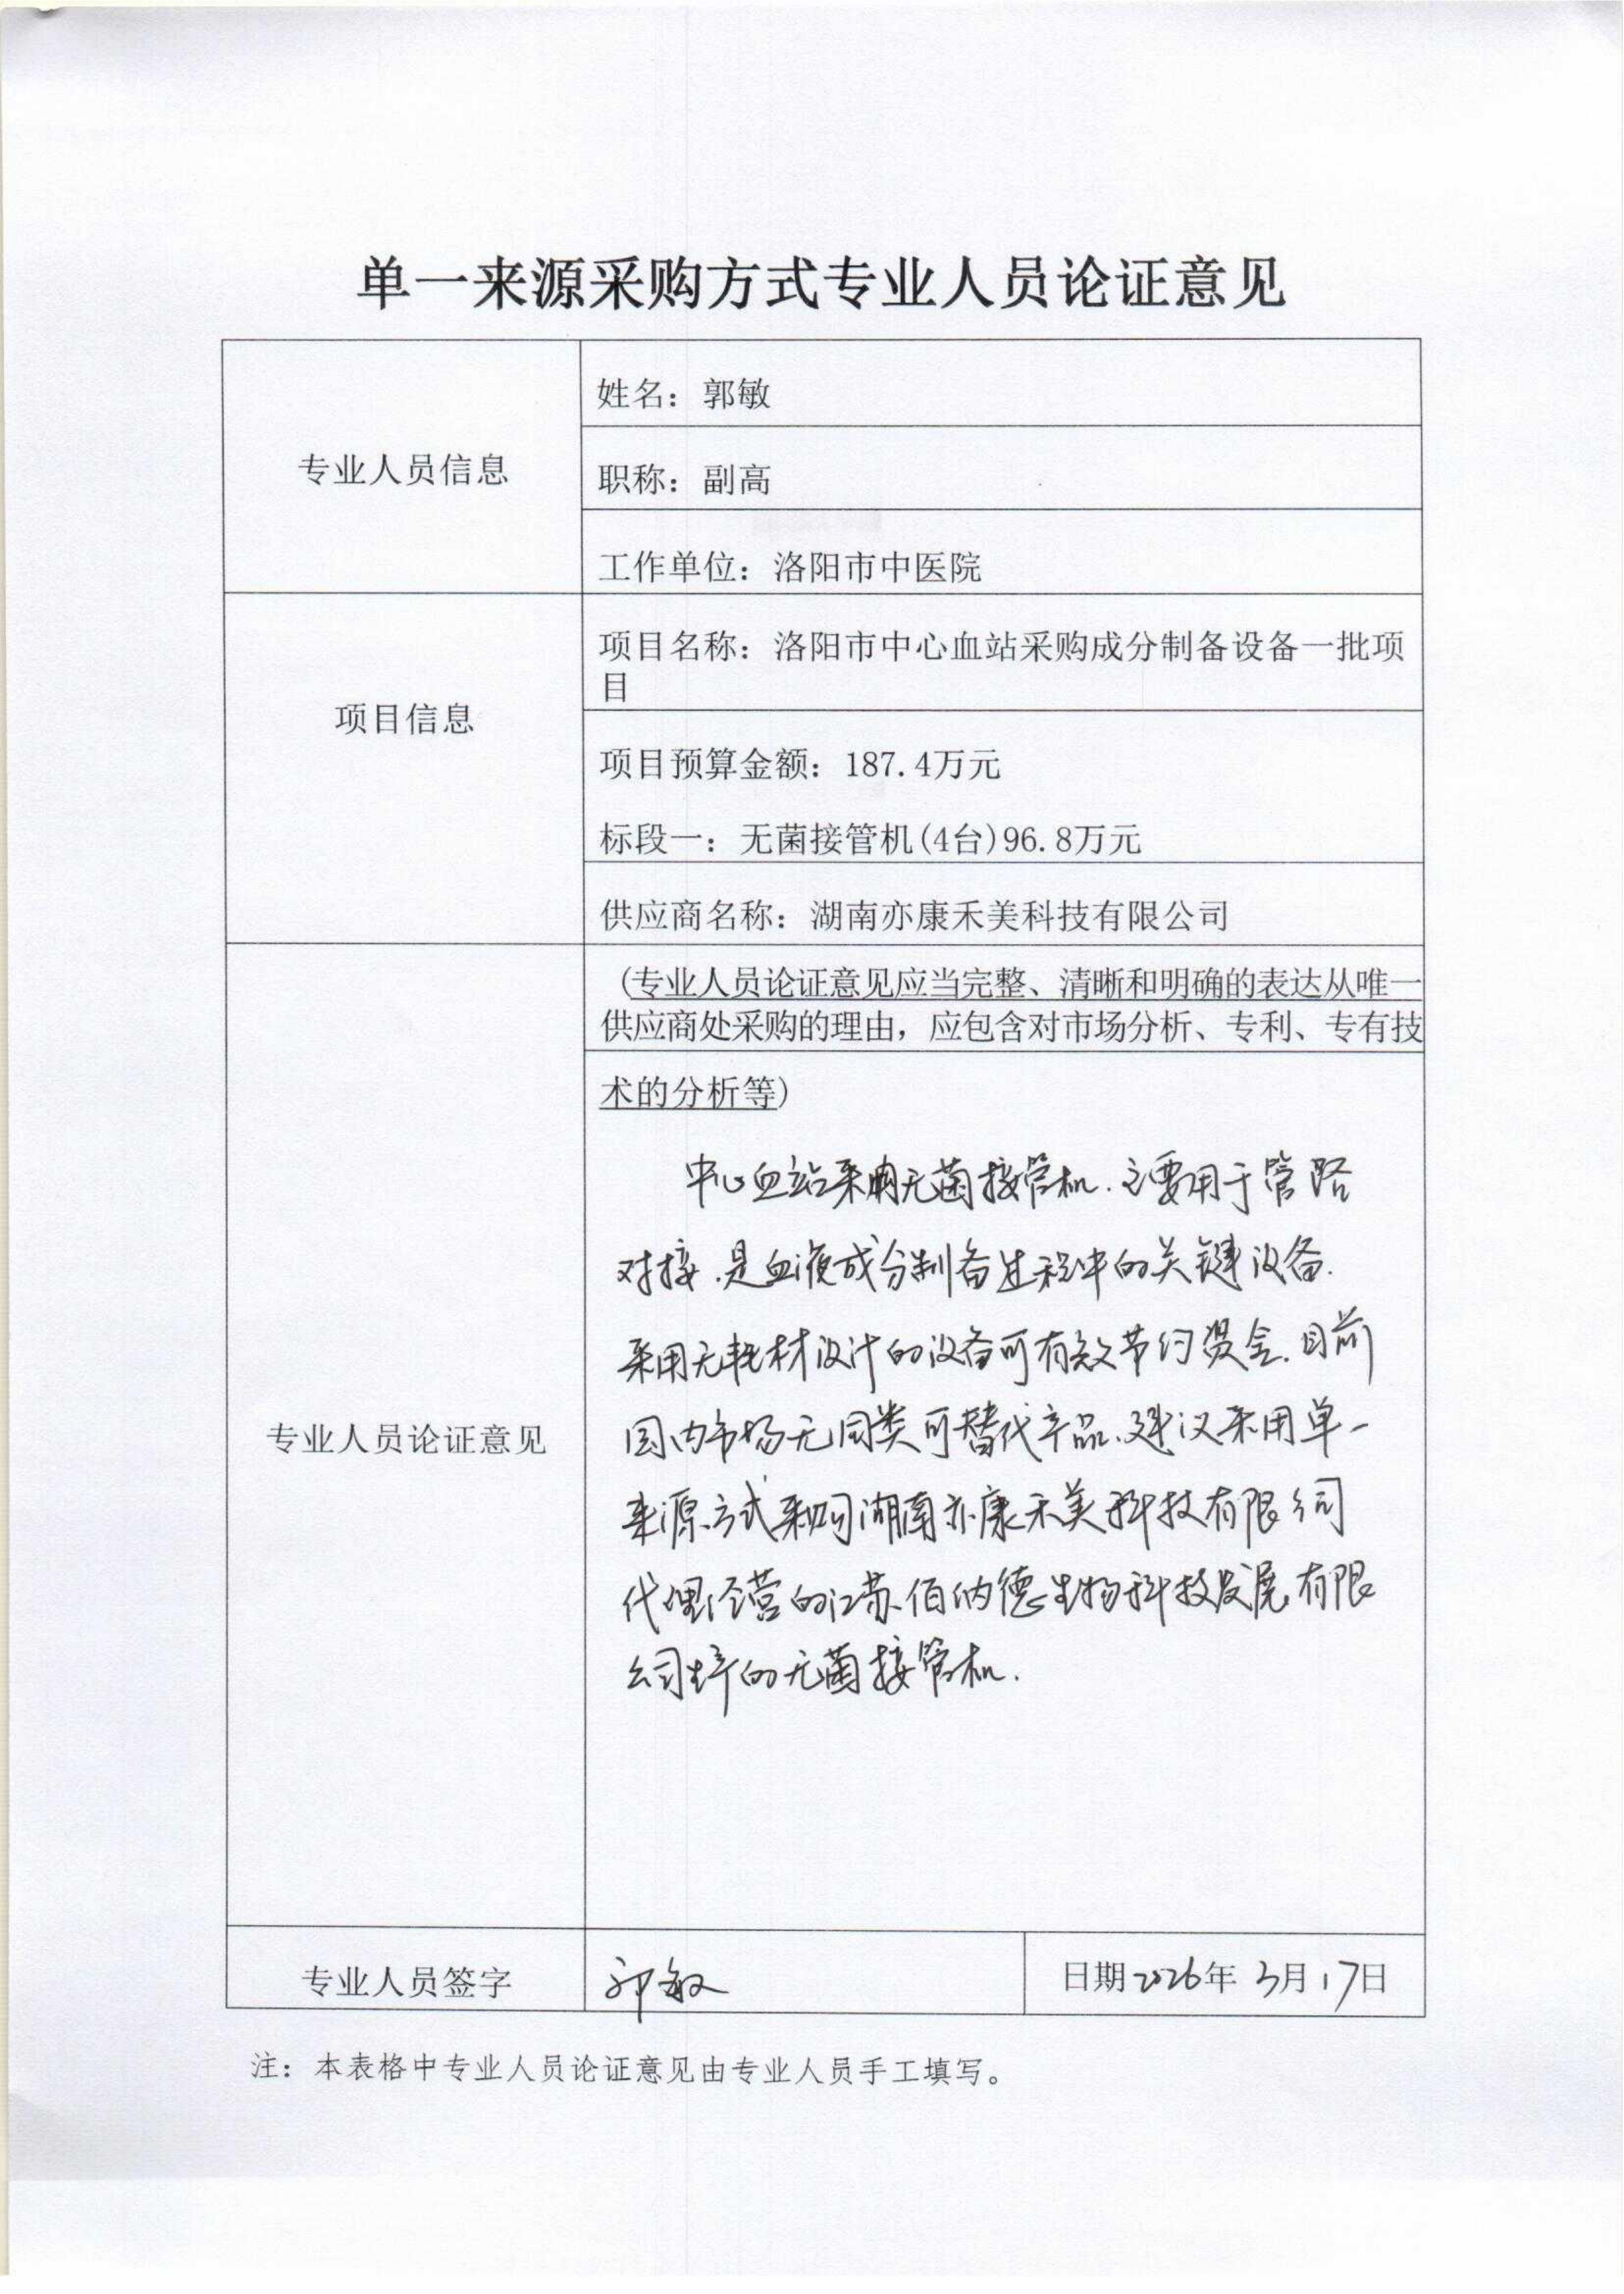 单一来源采购方式专业人员论证意见
专业人员信息
姓名：郭敏
职称：副高
工作单位：洛阳市中医院
项目信息
项目名称：洛阳市中心血站采购成分制备设备一批项
目
项目预算金额：187.4万元
标段一：无菌接管机(4台)96.8万元
供应商名称：湖南亦康禾美科技有限公司
专业人员论证意见
(专业人员论证意见应当完整、清晰和明确的表达从唯一
供应商处采购的理由，应包含对市场分析、专利、专有技
术的分析等)
中心血站采购无菌接管机.主要用于管路
对接.是血液成分制备过程中的关键设备.
采用无耗材设计的设备可有效节约资金.目前
国内市场无同类可替代产品.建议采用单一
来源方式采购湖南亦康禾美科技有限公司
代理经营的江苏伯纳德生物科技发展有限
公司生产的无菌接管机.
专业人员签字
郭敏
日期2026年3月17日
注：本表格中专业人员论证意见由专业人员手工填写。